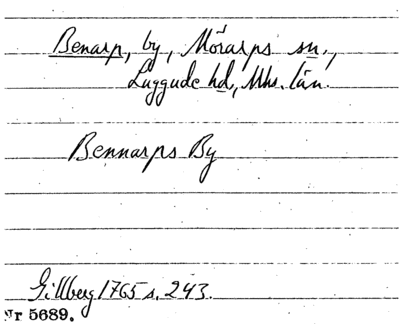 Benarp, by, Mörarps sn.,
Luggude hd, Mhs. län.
Bennarps By
Gillberg 1765 s. 243.
Nr 5689.